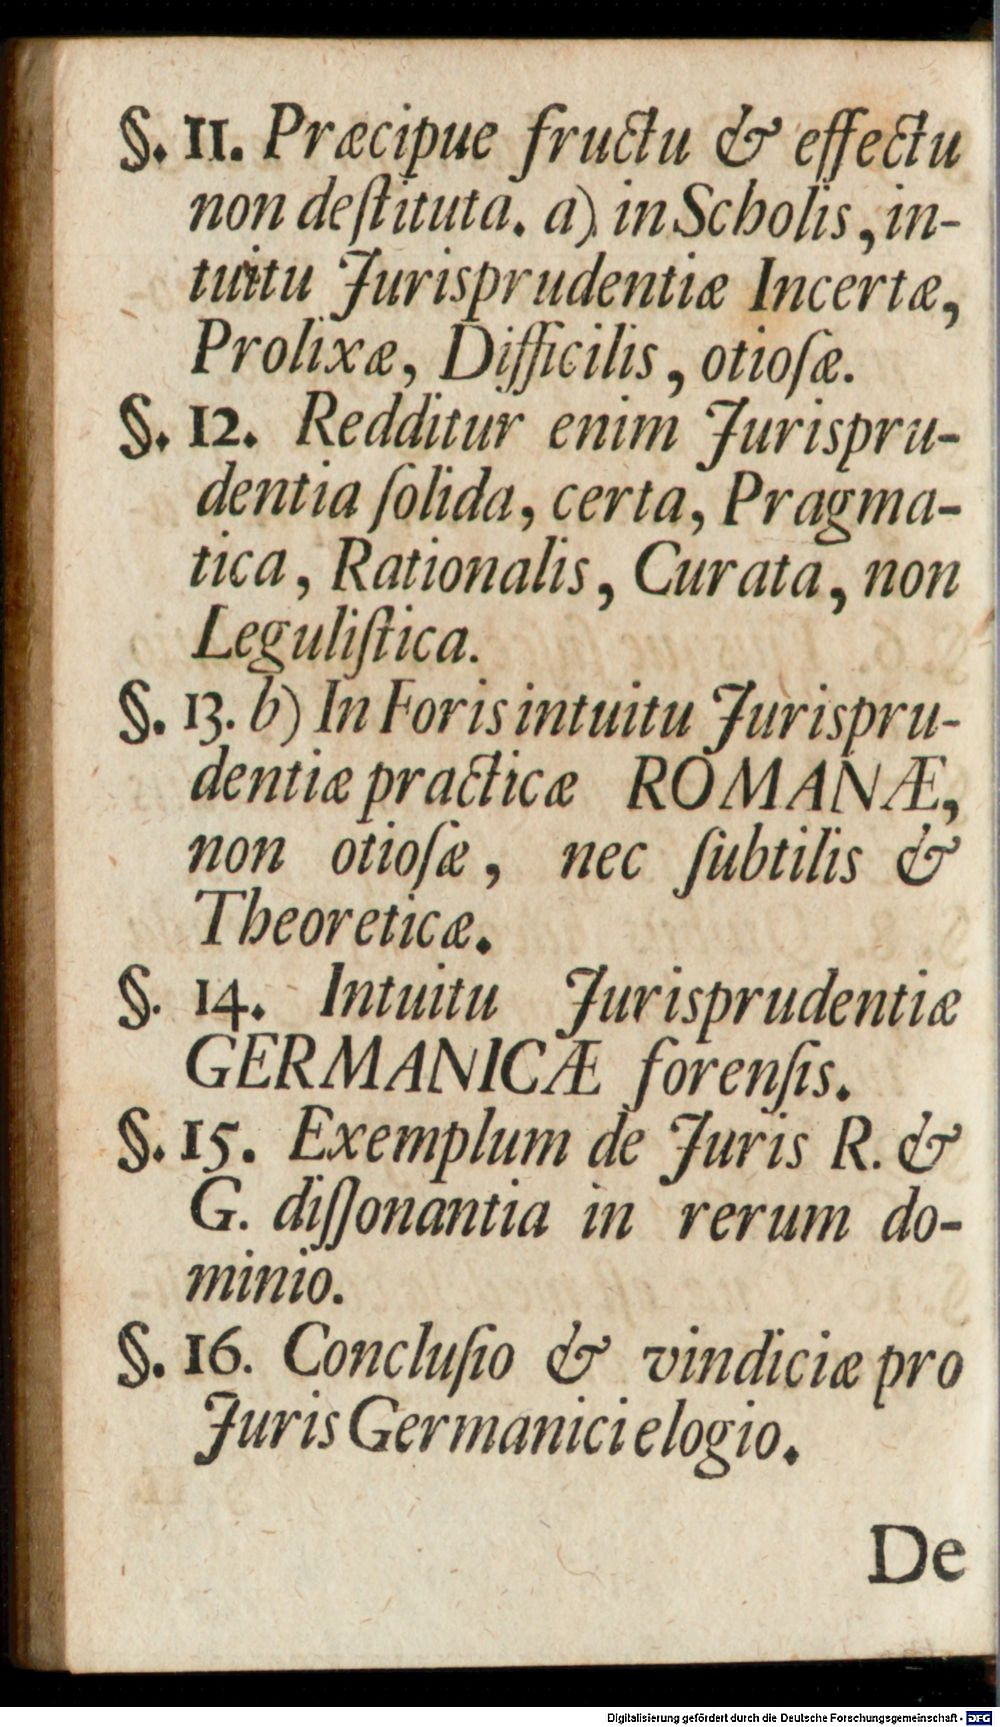 §. 11. Præcipue fructu & effectu
non deſtituta. a) in Scholis, in-
tuitu Jurisprudentiæ Incertæ,
Prolixæ, Difficilis, otioſæ.
§. 12. Redditur enim Jurispru-
dentia ſolida, certa, Pragma-
tica, Rationalis, Curata, non
Leguliſtica.
§. 13. b) In Foris intuitu Jurispru-
dentiæ practicæ ROMANÆ,
non otioſæ, nec ſubtilis &
Theoreticæ.
§. 14. Intuitu Jurisprudentiæ
GERMANICÆ forenſis.
§. 15. Exemplum de Juris R. &
G. diſſonantia in rerum do-
minio.
§. 16. Concluſio & vindiciæ pro
Juris Germanici elogio.
De
Digitalisierung gefördert durch die Deutsche Forschungsgemeinschaft - DFG